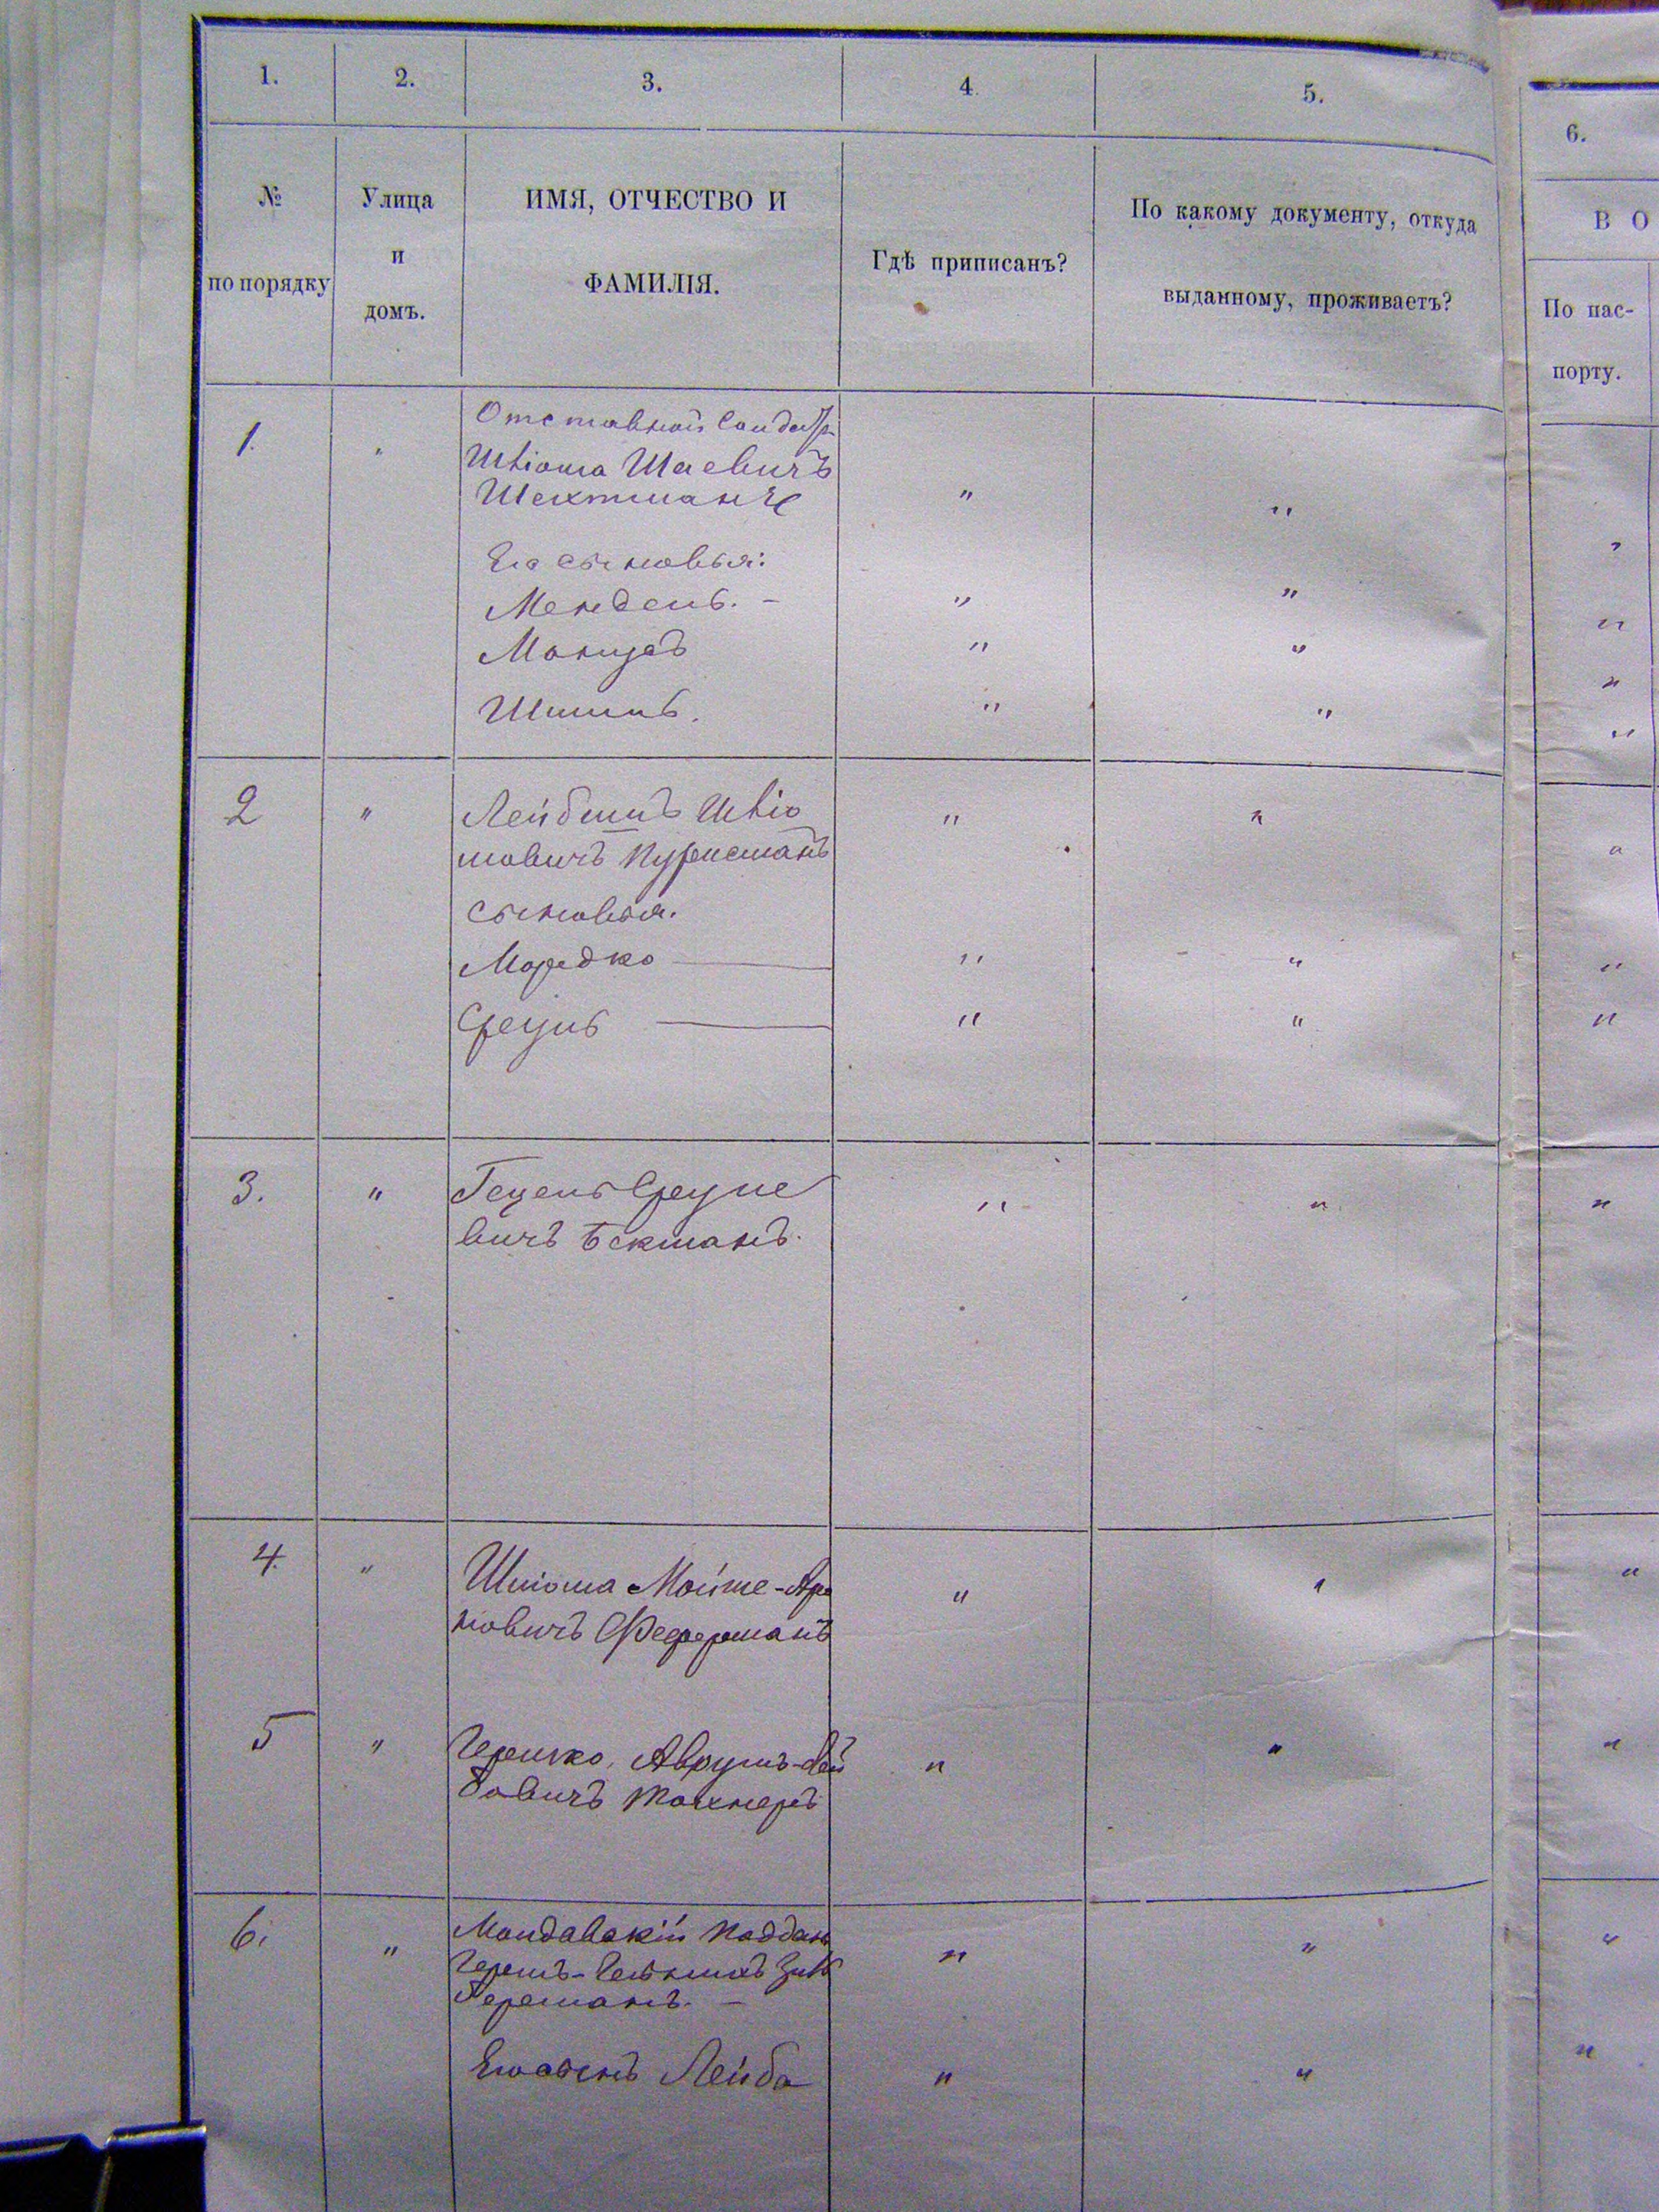 1. 2. 3. 4. 5. 6.
№ по порядку
Улица и домъ.
ИМЯ, ОТЧЕСТВО И
ФАМИЛІЯ.
Гдѣ приписанъ?
По какому документу, откуда
выданному, проживаетъ?
В О
По пас-
порту.
1. "
Отставной Солдатъ
Шліома Шаевичъ
Шехтманъ " "
Его сыновья:
Мендель. - " " "
" " "
Шмиль. " " "
2 " Лейбишъ Шліо " " "
мовичъ
сыновья.
Мордко " " "
Сруль " " "
3. " Гецель Сруле " " "
вичъ Бекманъ.
4. " Шліома Мойше-Аро " " "
новичъ Федерманъ
5 " Гершко, Аврумъ-Лей " " "
бовичъ Токнеръ
6. " Молдавскій поддан " " "
Гершъ- Зись
Германъ. -
Его сынъ Лейба " " "